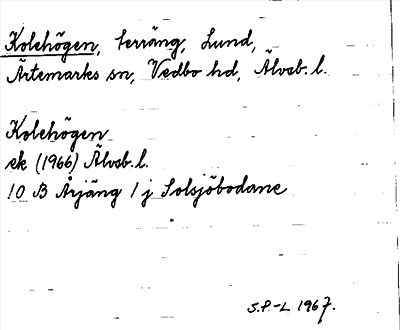 Kolehögen, terräng, Lund,
Ärtemarks sn, Vedbo hd, Älvsb. l.
Kolehögen
ek (1966) Älvsb. l.
10 B Årjäng 1 j Solsjöbodane
S.P-L 1967.